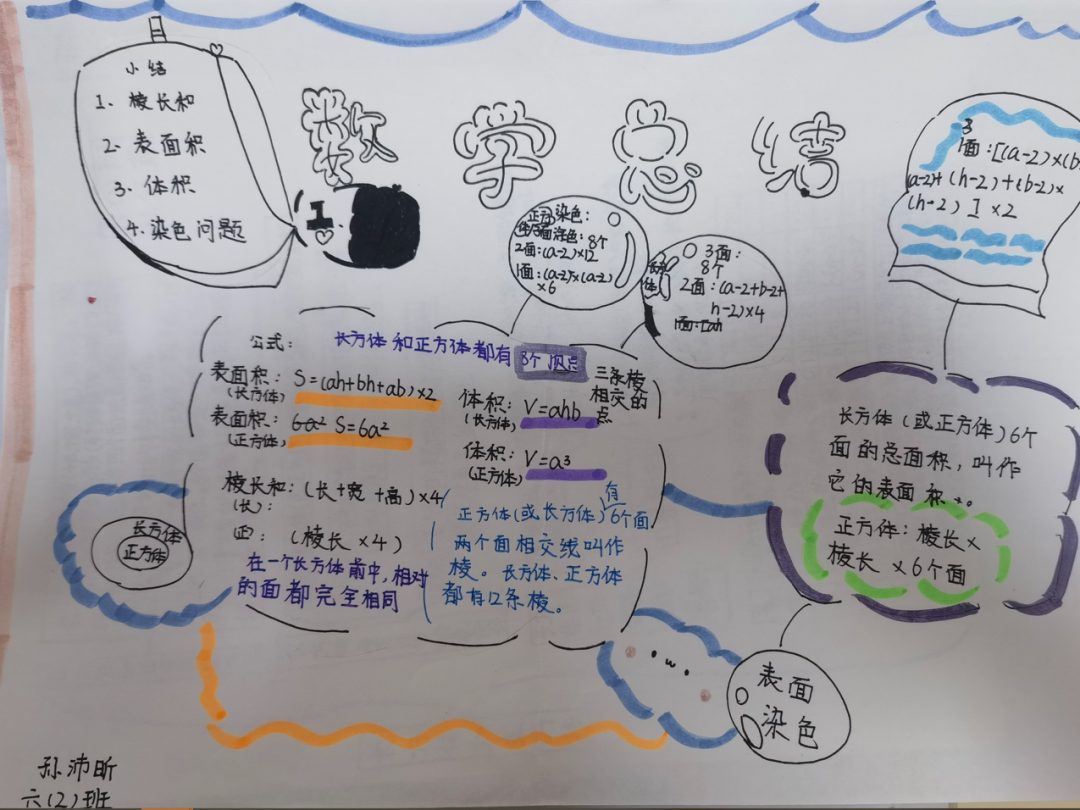 小结
1. 棱长和
2. 表面积
3. 体积
4. 染色问题
数学总结
1.
正方染色:
3面染色:8个
2面:(a-2)×12
1面:(a-2)×(a-2)
×6
长方体
3面:
8个
2面:(a-2+b-2+
h-2)×4
1面:[ah
3
1面:[(a-2)×(b-
(a-2)+(h-2)+(b-2)×
(h-2)]×2
公式:
长方体和正方体都有8个顶点
三条棱
相交的
点
表面积:S=(ah+bh+ab)×2
(长方体)
表面积:6a² S=6a²
(正方体)
体积:V=ahb
(长方体)
体积:V=a³
(正方体)
棱长和:(长+宽+高)×4
(长):
正:(棱长×4)
在一个长方体前中,相对
的面都完全相同
正方体(或长方体)有6个面
两个面相交线叫作
棱。长方体、正方体
都有12条棱。
长方体
正方体
长方体(或正方体)6个
面的总面积,叫作
它的表面积。
正方体:棱长×
棱长×6个面
表面
染色
孙沛昕
六(2)班